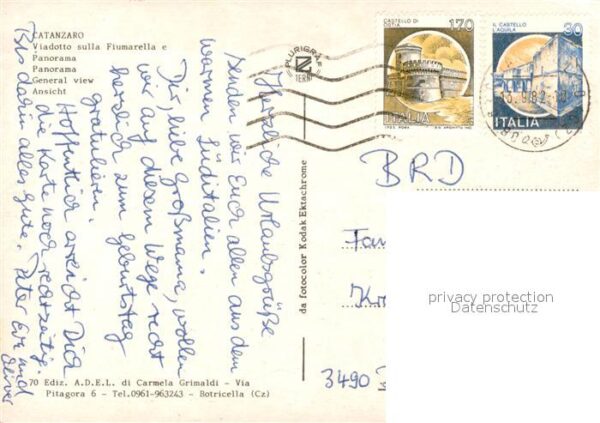 CATANZARO
Viadotto sulla Fiumarella e
Panorama
Panorama
General view
Ansicht
Herzliche Urlaubsgrüße
senden wir Euch allen aus dem
warmen Süditalien.
Dir, liebe Großmama, wollen
wir auf diesem Wege recht
herzlich zum Geburtstag
gratulieren.
Hoffentlich erreicht Dich
die Karte noch rechtzeitig.
Bis dahin alles Gute. Peter Eva und
Oliver
70 Ediz. A.D.E.L. di Carmela Grimaldi - Via
Pitagora 6 - Tel.0961-963243 - Botricella (Cz)
PLURIGRAF
TERNI
da fotocolor Kodak Ektachrome
CASTELLO DI
OSTIA
170
ITALIA
IL CASTELLO
L'AQUILA
30
ITALIA
BRD
Fam
3490
privacy protection
Datenschutz